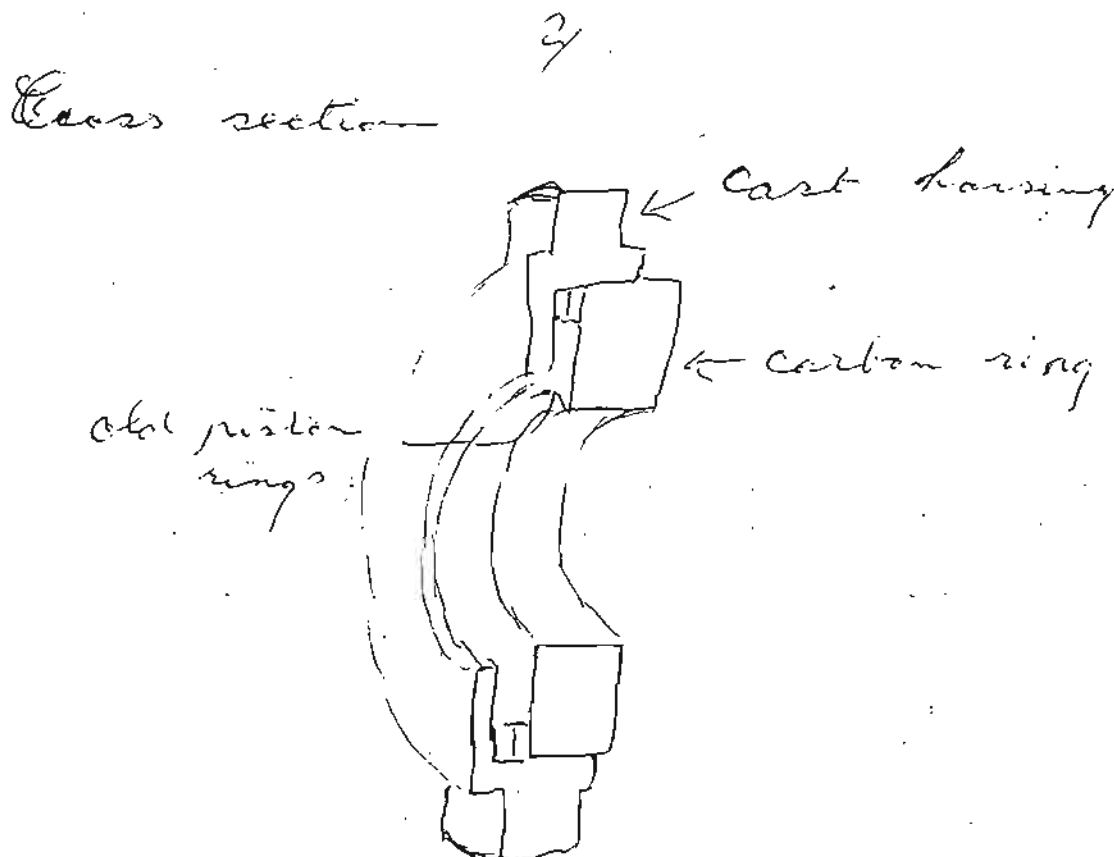 2/
Cross section
cast housing
carbon ring
old piston
rings